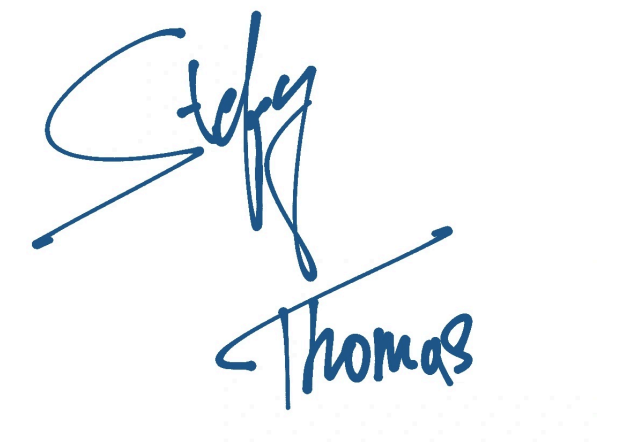 Stefy
Thomas